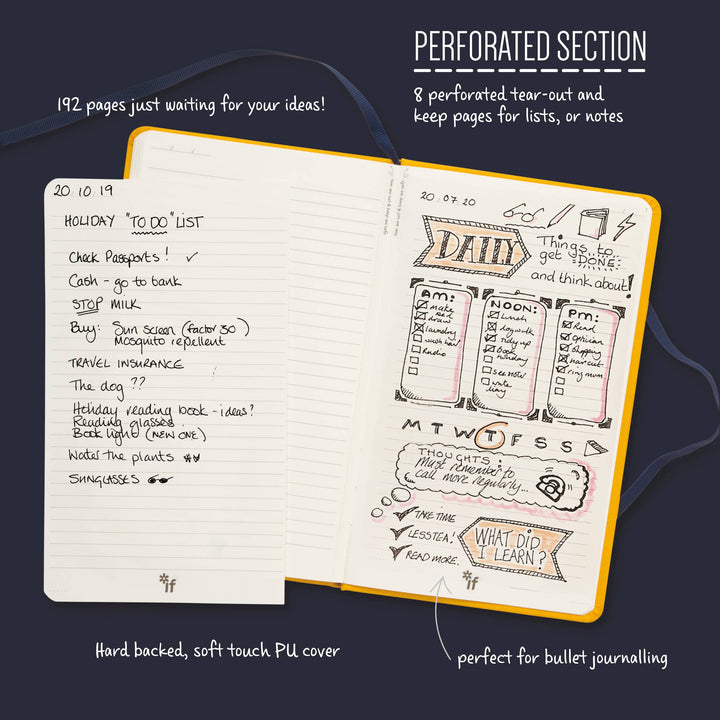 PERFORATED SECTION
8 perforated tear-out and
keep pages for lists, or notes
192 pages just waiting for your ideas!
20.10.19
HOLIDAY "TO DO" LIST
Check Passports! ✓
Cash - go to bank
STOP MILK
Buy: Sun screen (factor 30)
Mosquito repellent
TRAVEL INSURANCE
The dog ??
Holiday reading book - ideas?
Reading glasses
Book light (NEW ONE)
Water the plants
SUNGLASSES
*if
20.07.20
DAILY
Things to
get DONE
and think about!
AM:
make
bed
draw
laundry
wash hair
Radio
NOON:
Lunch
Dog walk
Tidy up
Book
holiday
See note
write
diary
PM:
Read
Optician
Shopping
hair cut
ring mum
M T W T F S S
THOUGHTS:
Must remember to
call more regularly...
TAKE TIME
LESS TEA!
READ MORE.
WHAT DID
I LEARN?
*if
Hard backed, soft touch PU cover
perfect for bullet journalling